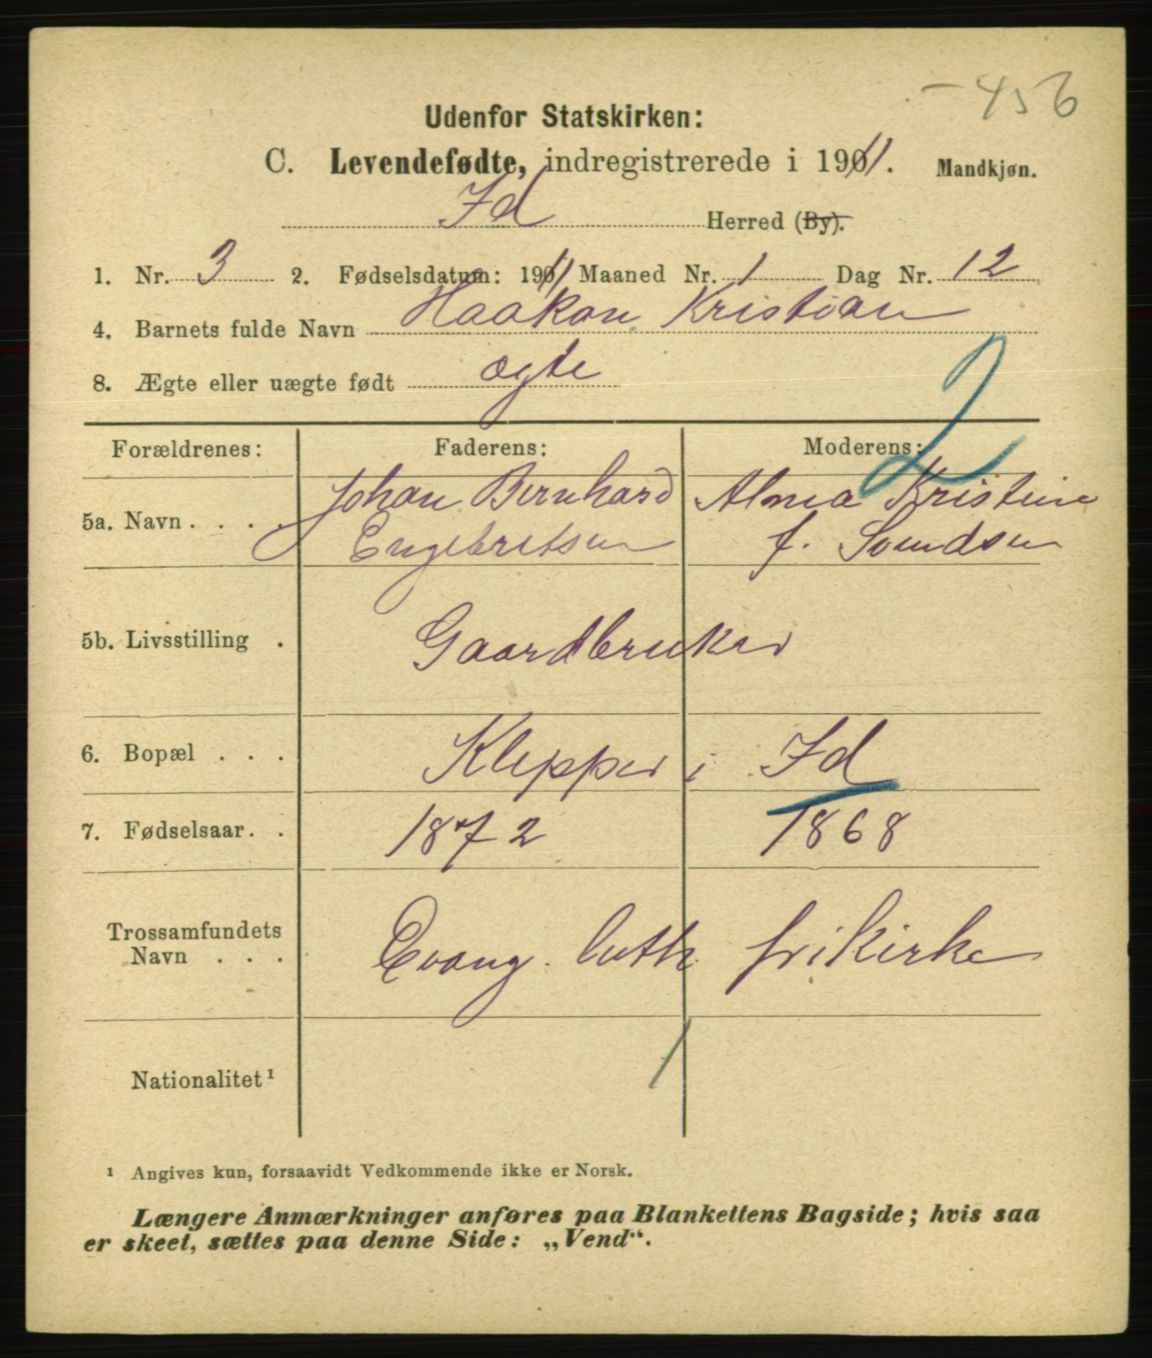 -456
Udenfor Statskirken:
C. Levendefødte, indregistrerede i 1911. Mandkjøn.
Id Herred (By).
1. Nr. 3 2. Fødselsdatum: 1911 Maaned Nr. 1 Dag Nr. 12
4. Barnets fulde Navn Haakon Kristian
8. Ægte eller uægte født ægte
2
Forældrenes: Faderens: Moderens:
5a. Navn . . . . Johan Bernhard Alma Kristine
Engebretsen f. Svendsen
5b. Livsstilling . Gaardbruker
6. Bopæl . . . Klepper i Id
7. Fødselsaar. . 1872 1868
Trossamfundets
Navn . . . Evang. luth. frikirke
Nationalitet¹ /
¹ Angives kun, forsaavidt Vedkommende ikke er Norsk.
Længere Anmærkninger anføres paa Blankettens Bagside; hvis saa
er skeet, sættes paa denne Side: „Vend“.